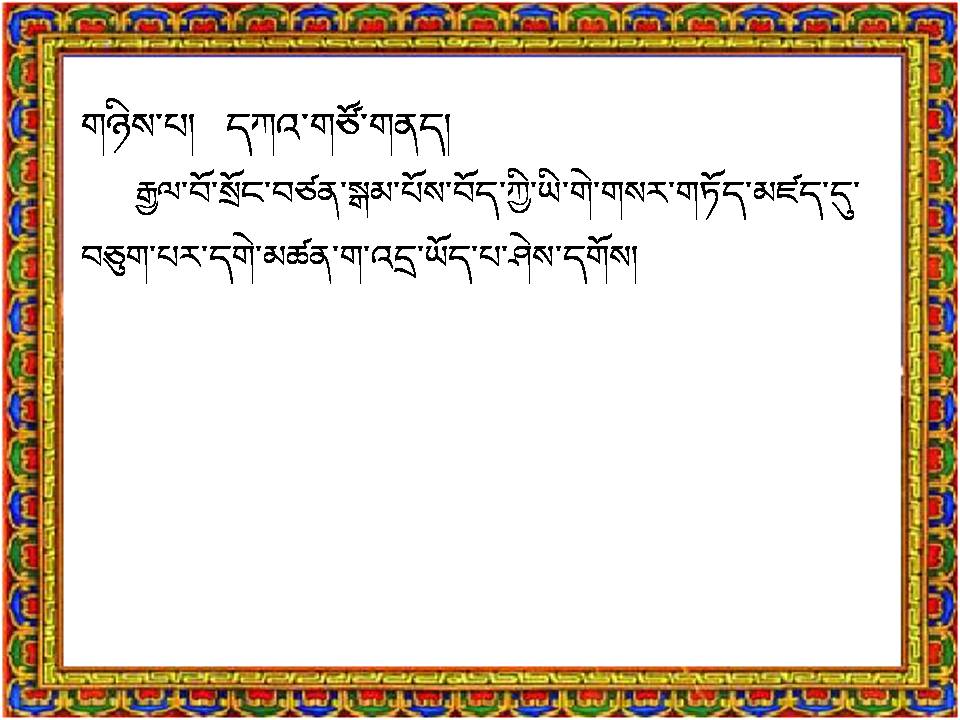 གཉིས་པ། དཀའ་གཙོ་གནད།
རྒྱལ་བོ་སྲོང་བཙན་སྒམ་པོས་བོད་ཀྱི་ཡི་གེ་གསར་གཏོད་མཛད་དུ་
བཅུག་པར་དགེ་མཚན་ག་འདྲ་ཡོད་པ་ཤེས་དགོས།